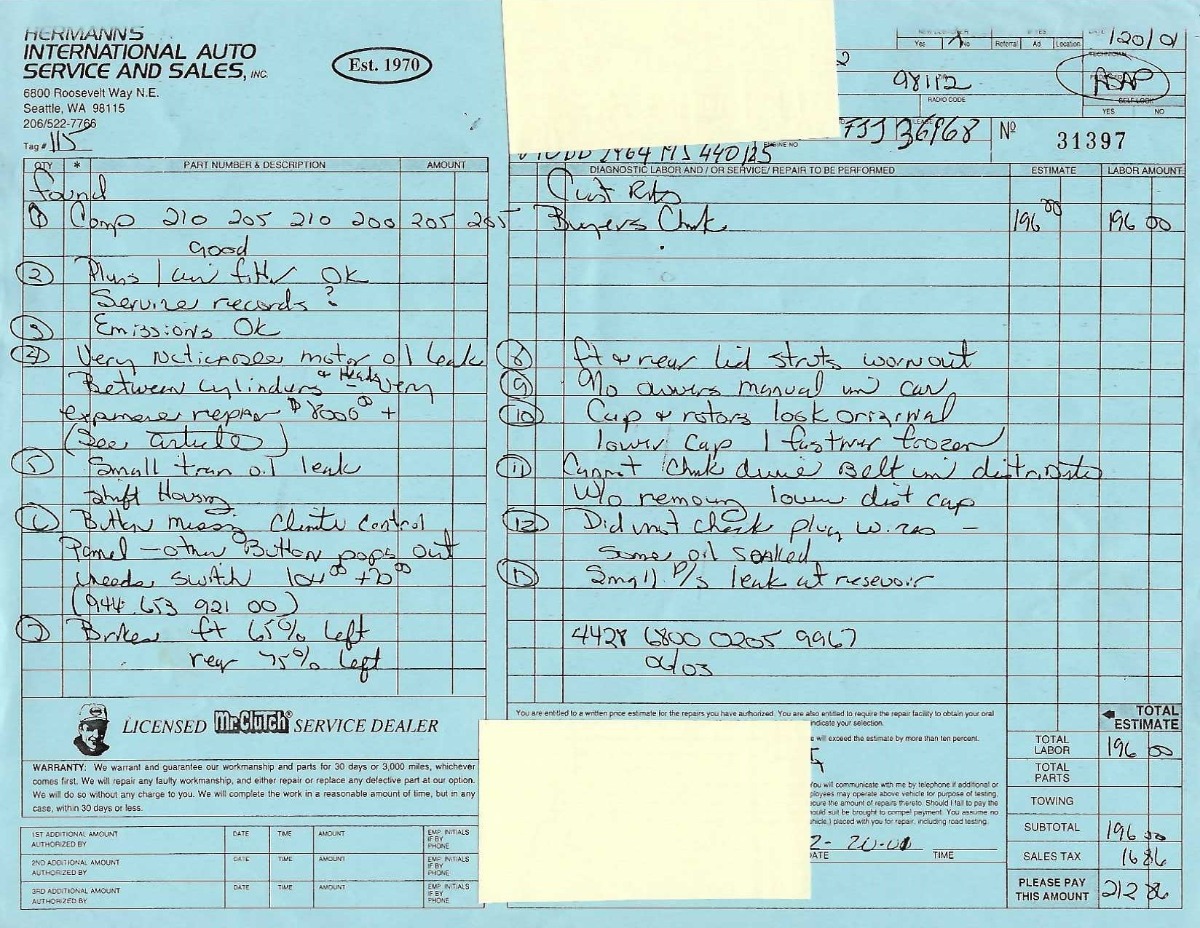 HERMANN'S
INTERNATIONAL AUTO
SERVICE AND SALES, INC.
6800 Roosevelt Way N.E.
Seattle, WA 98115
206/522-7766
Tag # 115
Est. 1970
Yes No Referral Ad Location
20/01
98112
RADIO CODE
ASAP
YES NO
36968
Nº 31397
ENGINE NO
QTY * PART NUMBER & DESCRIPTION AMOUNT
found
1 Comp 210 205 210 200 205 205
Good
2 Plugs / air filter OK
Service records?
3 Emissions OK
4 Very noticeable motor oil leak
Between cylinders & Heads very
expensive repair $8000 00 +
(See article)
5 Small tran oil leak
shift Housing
6 Button missing Climate Control
Panel - other Button pops out
needs switch 104 00 + 20 00
(944 653 921 00)
7 Brakes ft 65% left
rear 75% left
DIAGNOSTIC LABOR AND / OR SERVICE/ REPAIR TO BE PERFORMED ESTIMATE LABOR AMOUNT
Cust Rqts
Buyers Chek 196 00 196 00
8 ft & rear lid struts worn out
9 No owners manual in car
10 Cap & rotors look original
lower cap 1 fastner frozen
11 Cannot chek drive Belt in distributor
w/o removing lower dist cap
12 Did not check plug wires -
Some oil soaked
13 Small P/S leak at resevoir
4428 6800 0205 9967
06/03
LICENSED Mr.Clutch® SERVICE DEALER
WARRANTY: We warrant and guarantee our workmanship and parts for 30 days or 3,000 miles, whichever
comes first. We will repair any faulty workmanship, and either repair or replace any defective part at our option.
We will do so without any charge to you. We will complete the work in a reasonable amount of time, but in any
case, within 30 days or less.
1ST ADDITIONAL AMOUNT AUTHORIZED BY DATE TIME AMOUNT EMP. INITIALS IF BY PHONE
2ND ADDITIONAL AMOUNT AUTHORIZED BY DATE TIME AMOUNT EMP. INITIALS IF BY PHONE
3RD ADDITIONAL AMOUNT AUTHORIZED BY DATE TIME AMOUNT EMP. INITIALS IF BY PHONE
You are entitled to a written price estimate for the repairs you have authorized. You are also entitled to require the repair facility to obtain your oral
indicate your selection.
will exceed the estimate by more than ten percent.
You will communicate with me by telephone if additional or
ployees may operate above vehicle for purpose of testing,
cure the amount of repairs thereto. Should I fail to pay the
ould suit be brought to compel payment. You assume no
hicle) placed with you for repair, including road testing.
2-20-01
DATE TIME
TOTAL ESTIMATE
TOTAL LABOR 196 00
TOTAL PARTS
TOWING
SUBTOTAL 196 00
SALES TAX 16 86
PLEASE PAY THIS AMOUNT 212 86